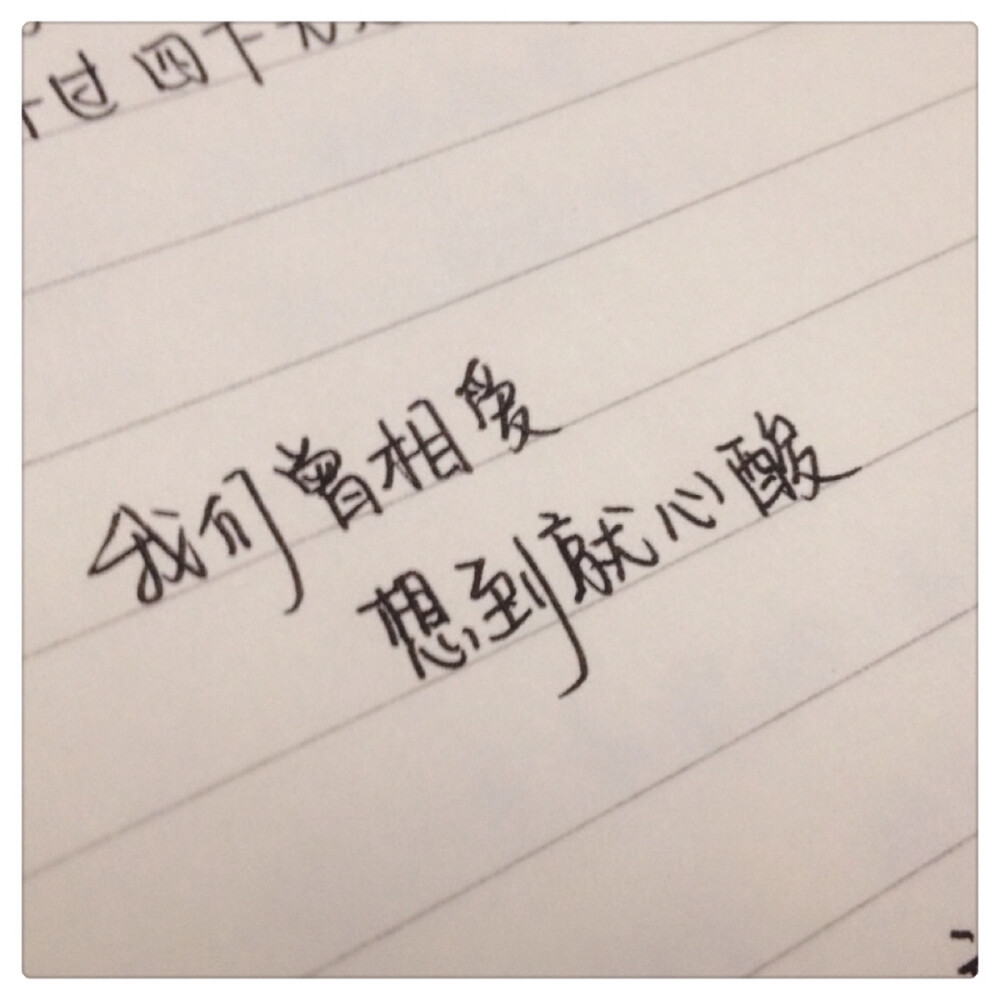 过四下无
我们曾相爱
想到就心酸